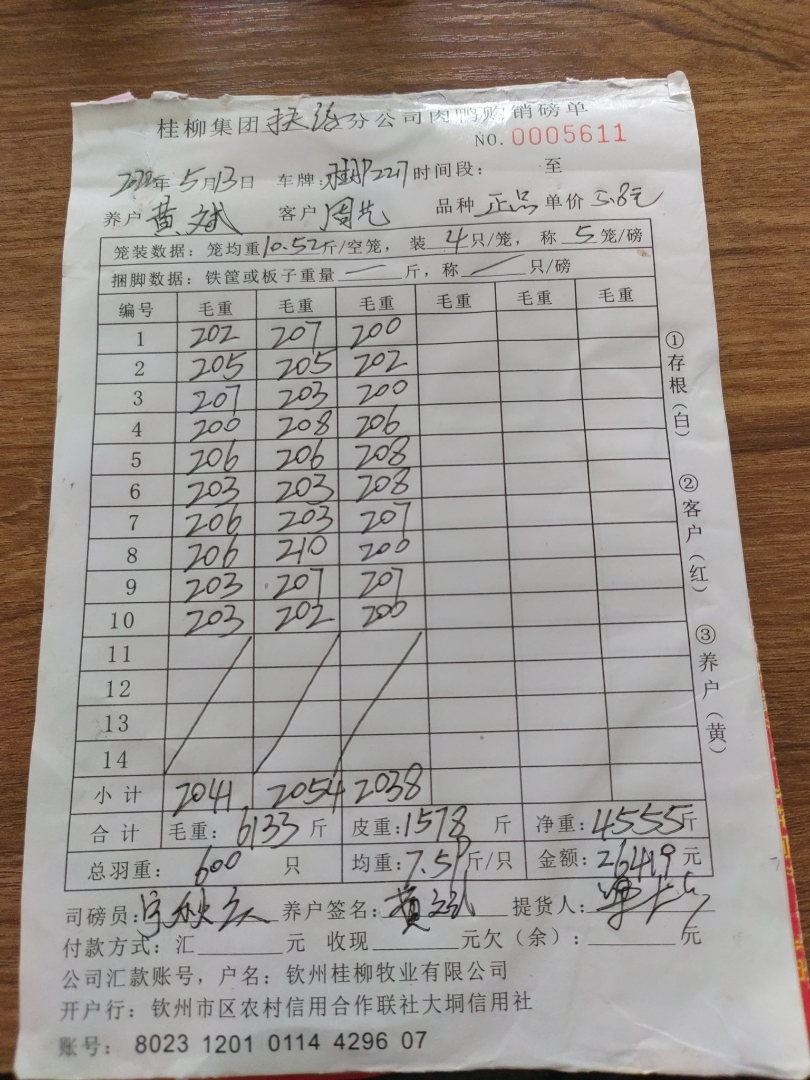 桂柳集团 分公司肉鸭购销磅单
NO. 0005611
2022年5月13日 车牌: 2217 时间段: 至
养户 黄斌 客户 周先 品种 正品 单价 5.8元
笼装数据: 笼均重10.52斤/空笼, 装4只/笼, 称5笼/磅
捆脚数据: 铁筐或板子重量一斤, 称一只/磅
编号 毛重 毛重 毛重 毛重 毛重 毛重
1 202 207 200
2 205 205 202
3 207 203 200
4 200 208 206
5 206 206 208
6 203 203 208
7 206 203 207
8 206 210 200
9 203 207 207
10 203 202 200
11
12
13
14
小计 2041 2054 2038
合计 毛重: 6133斤 皮重: 1578斤 净重: 4555斤
总羽重: 600只 均重: 7.59斤/只 金额: 26419元
司磅员: 养户签名: 黄斌 提货人:
付款方式: 汇 元 收现 元欠(余): 元
公司汇款账号, 户名: 钦州桂柳牧业有限公司
开户行: 钦州市区农村信用合作联社大垌信用社
账号: 8023 1201 0114 4296 07
①存根(白)
②客户(红)
③养户(黄)